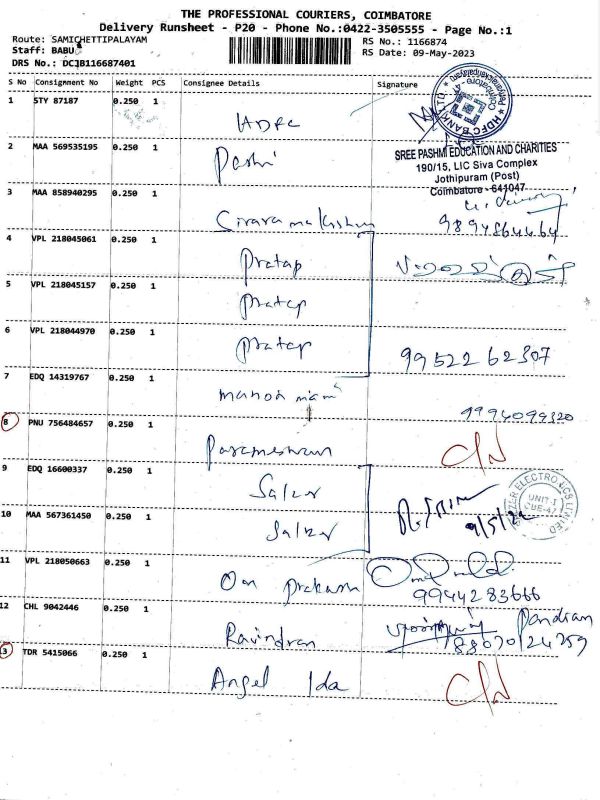 THE PROFESSIONAL COURIERS, COIMBATORE
Delivery Runsheet - P20 - Phone No.:0422-3505555 - Page No.:1
Route: SAMICHETTIPALAYAM
RS No.: 1166874
Staff: BABU
RS Date: 09-May-2023
DRS No.: DCJB116687401
S No Consignment No Weight PCS Consignee Details Signature
1 STY 87187 0.250 1
HDFC
HDFC BANK LTD.
2 MAA 569535195 0.250 1
Pashi
SREE PASHMI EDUCATION AND CHARITIES
190/15, LIC Siva Complex
Jothipuram (Post)
Coimbatore - 641047
3 MAA 858940295 0.250 1
9894864464
4 VPL 218045061 0.250 1
Pratap
5 VPL 218045157 0.250 1
Pratap
6 VPL 218044970 0.250 1
Pratap
9952262307
7 EDQ 14319767 0.250 1
manoa mani
9994099320
8 PNU 756484657 0.250 1
Parameswaran
C/N
9 EDQ 16600337 0.250 1
Salzer
SALZER ELECTRONICS LIMITED
UNIT-1
CBE-47
10 MAA 567361450 0.250 1
Salzer
11 VPL 218050663 0.250 1
Om Prakash
9944283666
12 CHL 9042446 0.250 1
Ravindran
Pandian
13 TDR 5415066 0.250 1
Angel Ida
C/N